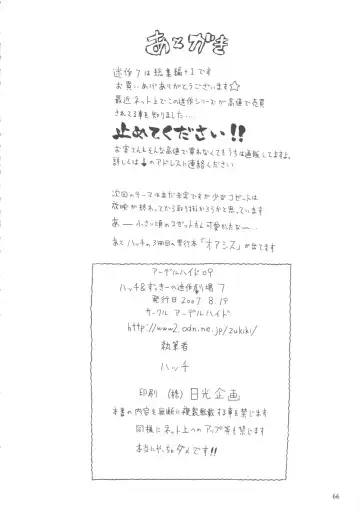 あとがき
迷作7は総集編+1です
お買いあげありがとうございます☆
最近ネット上でこの迷作シリーズが高値で売買
されてる事を知りました…
止めてください!!
お客さんもそんな高値で買わなくてもうちは通販してますよ。
詳しくは↓のアドレスに連絡ください
次回のテーマはまだ未定ですが少女コゼットは
放映が終わってから取りかかろうかと思っています
あー小さい頃のコゼットたん可愛かたな〜…
あと ハッチの3冊目の単行本「オアシス」が出てます
アーデルハイド09
ハッチ&ずっきーの迷作劇場7
発行日 2007 8.19
サークル アーデルハイド
http://www2.odn.ne.jp/zukiki/
執筆者
ハッチ
印刷 (株) 日光企画
本書の内容を無断に複製転載する事を禁じます
同様にネット上へのアップ等も禁じます
本当にやっちゃダメです!!
66